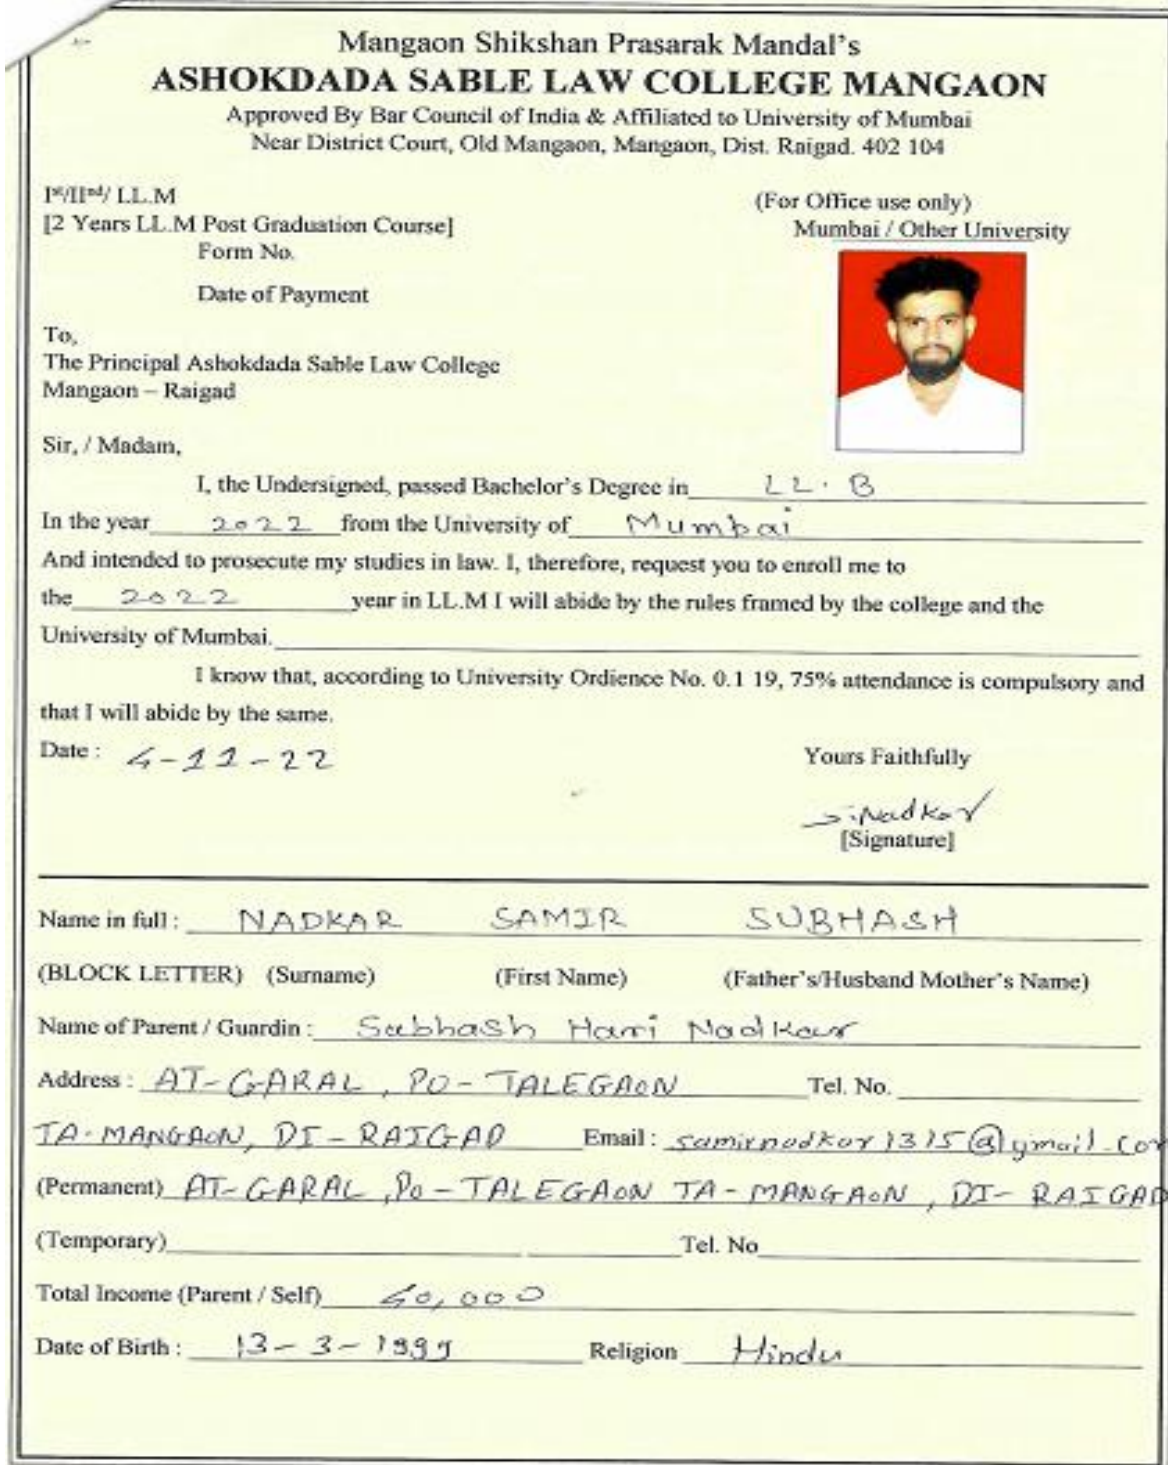 Mangaon Shikshan Prasarak Mandal's
ASHOKDADA SABLE LAW COLLEGE MANGAON
Approved By Bar Council of India & Affiliated to University of Mumbai
Near District Court, Old Mangaon, Mangaon, Dist. Raigad. 402 104
Ist/IInd/ LL.M
(For Office use only)
[2 Years LL.M Post Graduation Course]
Mumbai / Other University
Form No.
Date of Payment
To,
The Principal Ashokdada Sable Law College
Mangaon – Raigad
Sir, / Madam,
I, the Undersigned, passed Bachelor's Degree in LL.B
In the year 2022 from the University of Mumbai
And intended to prosecute my studies in law. I, therefore, request you to enroll me to
the 2022 year in LL.M I will abide by the rules framed by the college and the
University of Mumbai.
I know that, according to University Ordience No. 0.1 19, 75% attendance is compulsory and
that I will abide by the same.
Date : 4-11-22 Yours Faithfully
S.Nadkar
[Signature]
Name in full : NADKAR SAMIR SUBHASH
(BLOCK LETTER) (Surname) (First Name) (Father's/Husband Mother's Name)
Name of Parent / Guardin : Subhash Hari Nadkar
Address : AT-GARAL, PO-TALEGAON Tel. No.
TA-MANGAON, DI-RAIGAD Email : samirnadkar1315@gmail.com
(Permanent) AT-GARAL, PO-TALEGAON TA-MANGAON, DI-RAIGAD
(Temporary) Tel. No
Total Income (Parent / Self) 40,000
Date of Birth : 13-3-1999 Religion Hindu